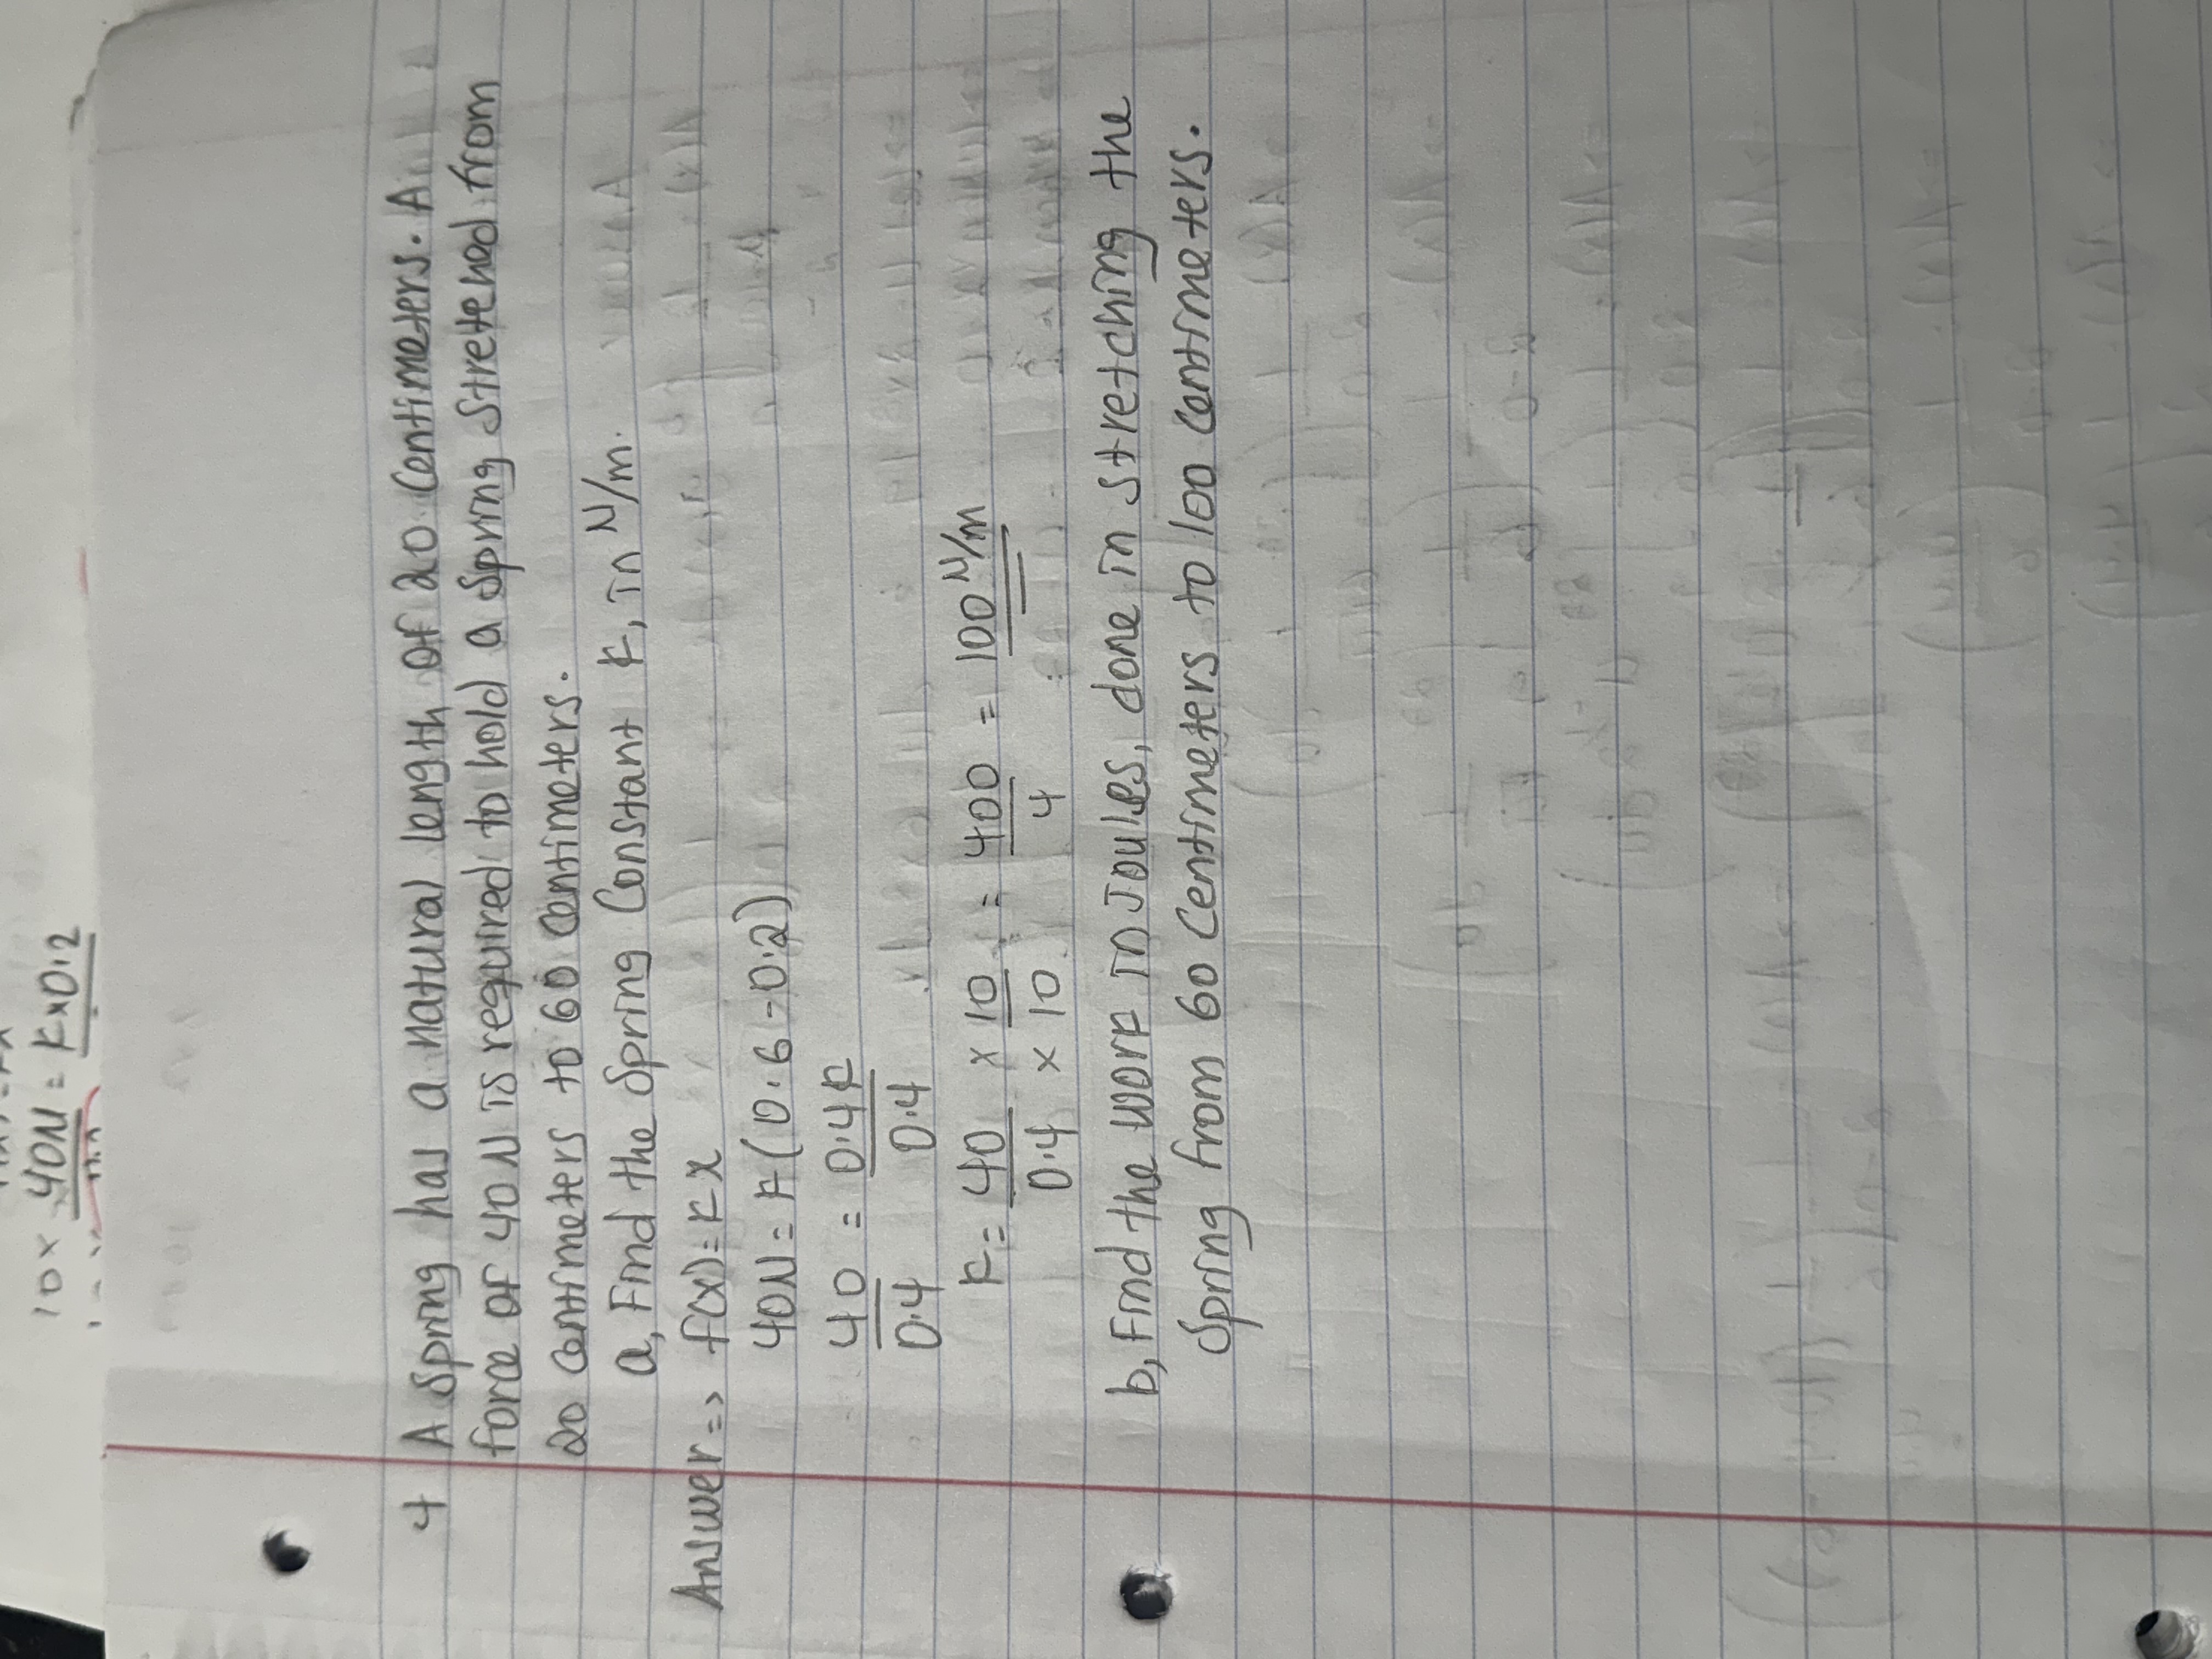 10 x 40N = K x 0.2
4 A Spring has a natural length of 20 Centimeters. A
force of 40 N is required to hold a Spring Stretched from
20 centimeters to 60 centimeters.
a, Find the Spring Constant K, in N/m.
Answer => f(x) = Kx
40N = K (0.6 - 0.2)
40 / 0.4 = 0.4K / 0.4
K = 40 / 0.4 x 10 / x 10 = 400 / 4 = 100 N/m
b, Find the work in Joules, done in stretching the
Spring from 60 Centimeters to 100 Centimeters.